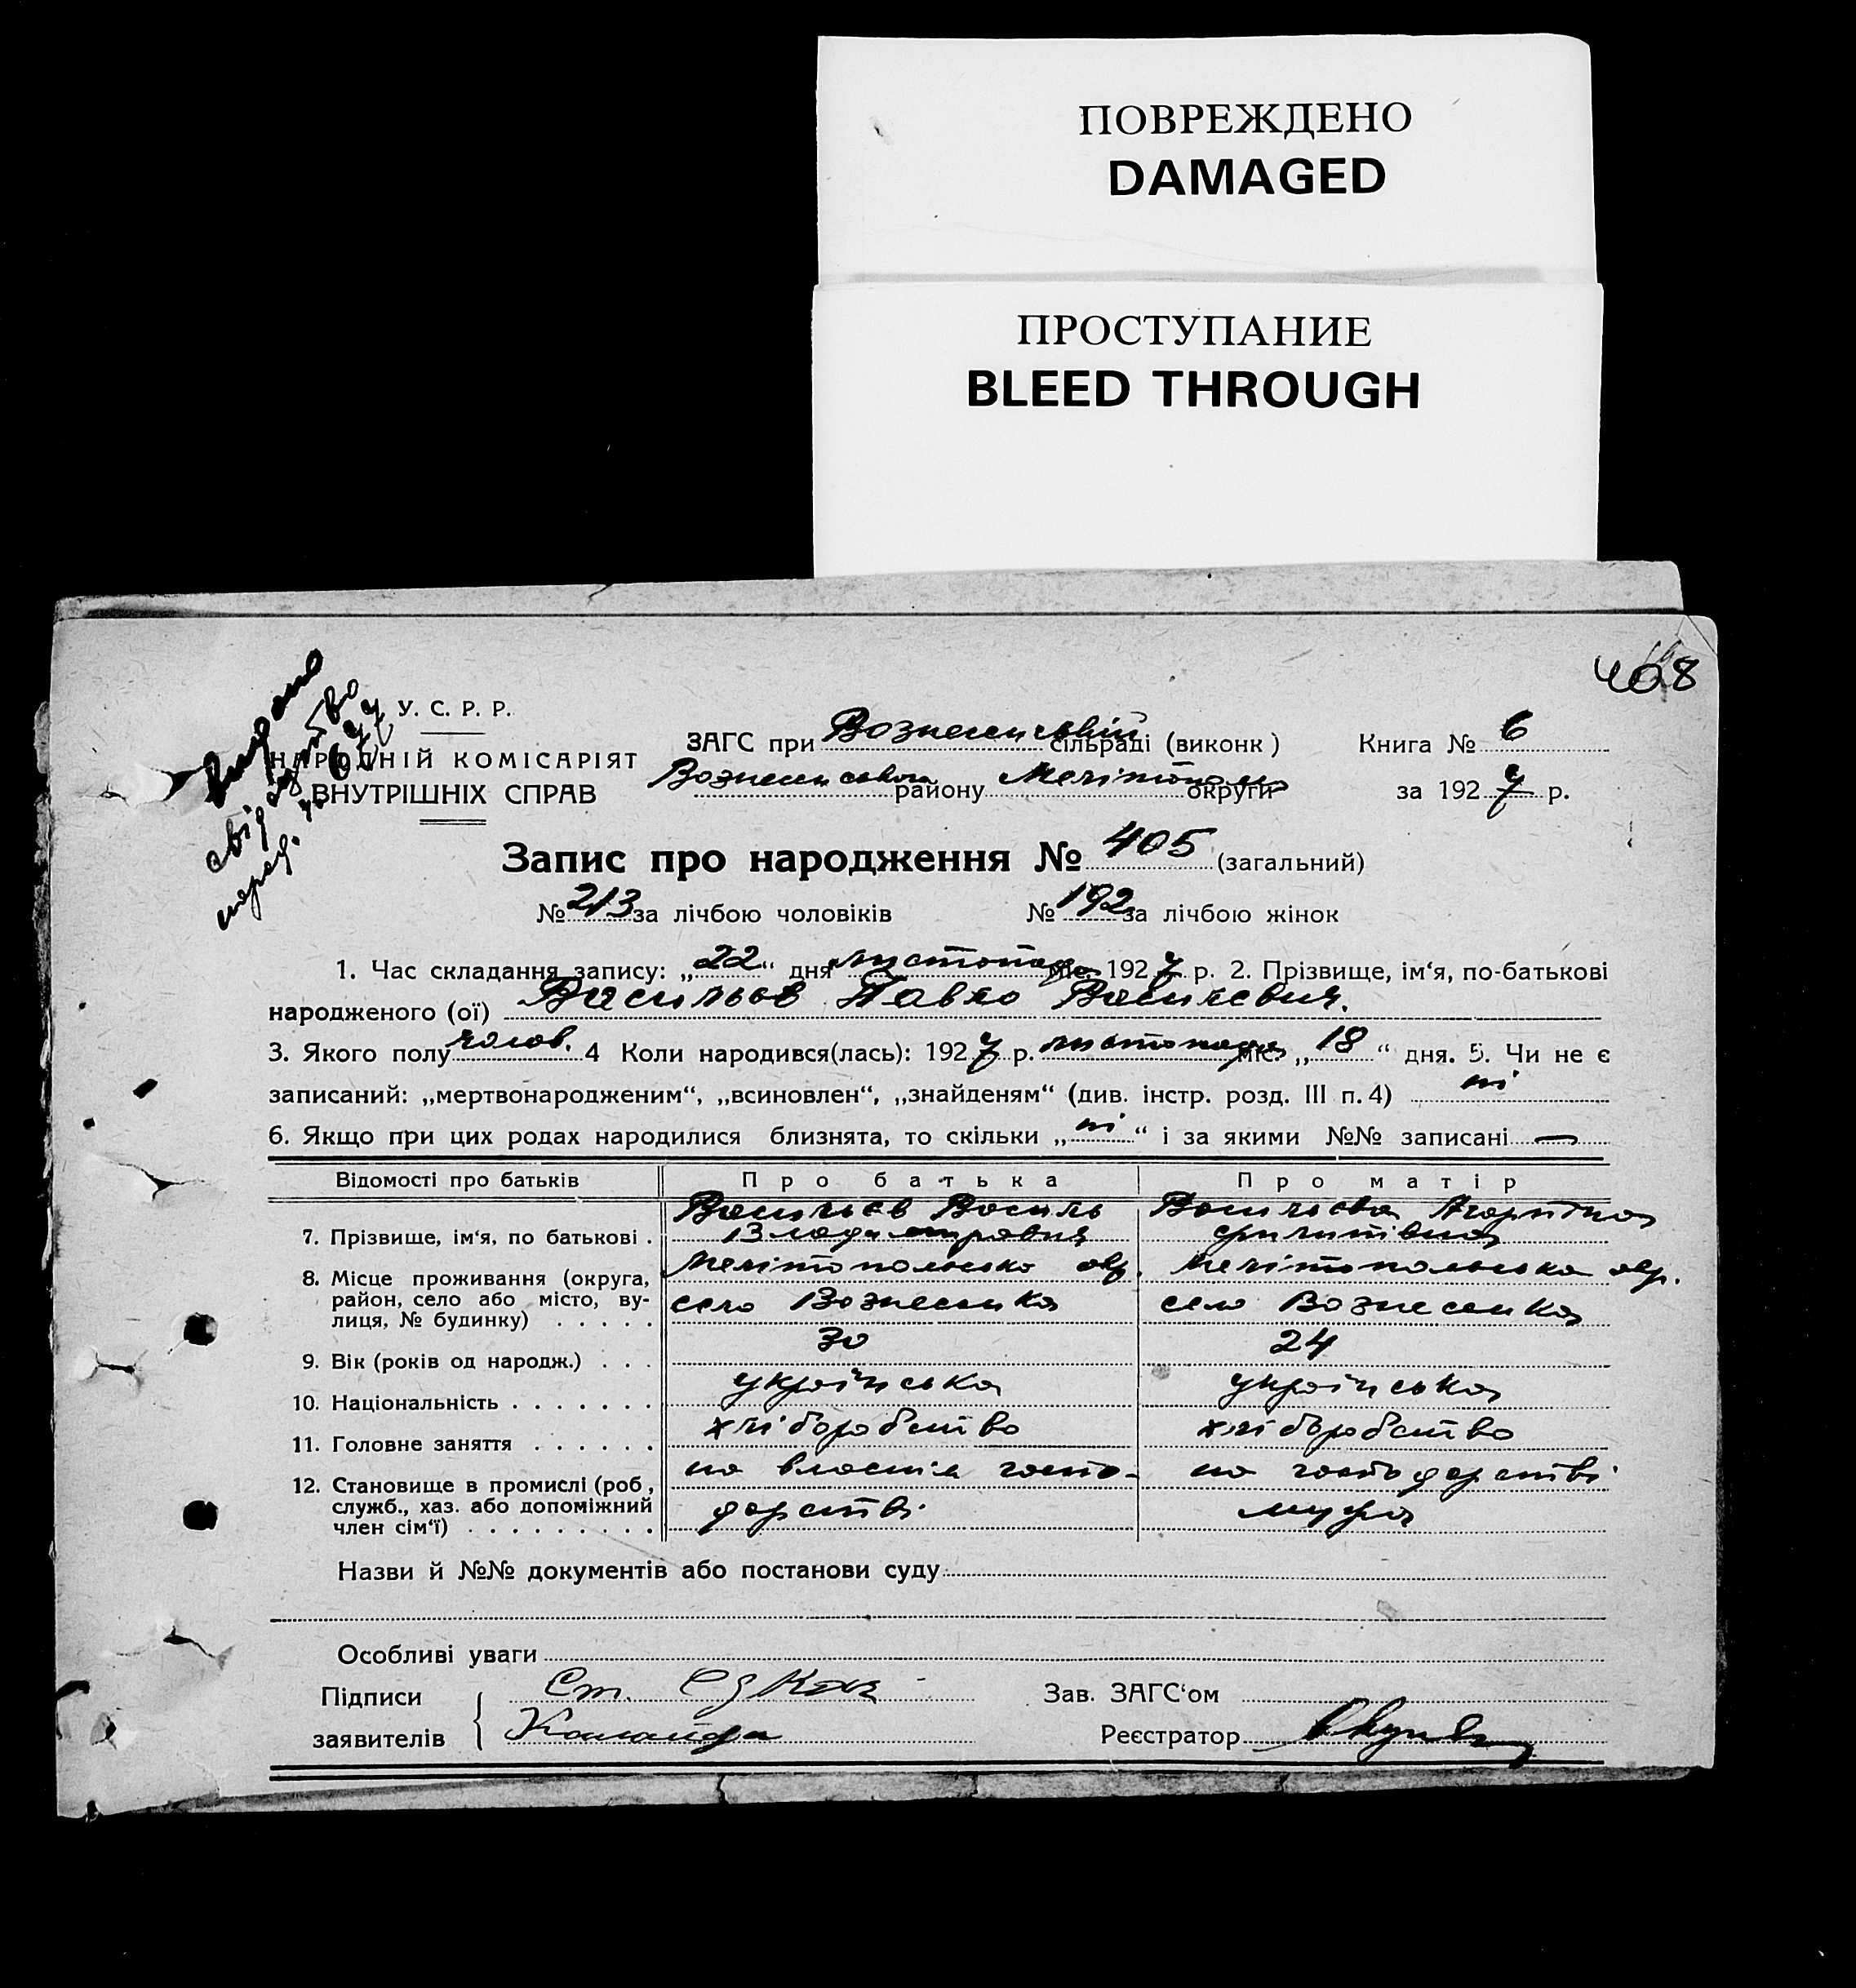 ПОВРЕЖДЕНО
DAMAGED
ПРОСТУПАНИЕ
BLEED THROUGH
408
видано
свідоцтво
У. С. Р. Р.
НАРОДНІЙ КОМІСАРІЯТ
ВНУТРІШНІХ СПРАВ
ЗАГС при Вознесенській сільраді (виконк) Книга № 6
Вознесенського району Мелітополь округи за 1927 р.
Запис про народження № 405 (загальний)
№ 213 за лічбою чоловіків № 192 за лічбою жінок
1. Час складання запису: „22“ дня листопада міс. 1927 р. 2. Прізвище, ім‘я, по-батькові
народженого (ої) Васильєв Павло Васильевич.
3. Якого полу чолов. 4 Коли народився(лась): 1927 р. листопада міс. „18“ дня. 5. Чи не є
записаний: „мертвонародженим“, „всиновлен“, „знайденям“ (див. інстр. розд. III п. 4) ні
6. Якщо при цих родах народилися близнята, то скільки „ні“ і за якими №№ записані —
Відомості про батьків Про батька Про матір
Васильєв Василь Васильєва
7. Прізвище, ім‘я, по батькові . Владимирович Филипівна
8. Місце проживання (округа, Мелітопольська окр. Мелітопольська окр.
район, село або місто, ву- село Вознесенка село Вознесенка
лиця, № будинку) . . . . .
9. Вік (років од народж.) . . . 30 24
10. Національність . . . . . . . українська українська
11. Головне заняття . . . . . . хліборобство хліборобство
12. Становище в промислі (роб, на власнім госпо- на господарстві
служб., хаз. або допоміжний дарстві мужа
член сім‘ї) . . . . . . . . .
Назви й №№ документів або постанови суду
Особливі уваги
Підписи Ст. Зав. ЗАГС‘ом
заявителів Реєстратор